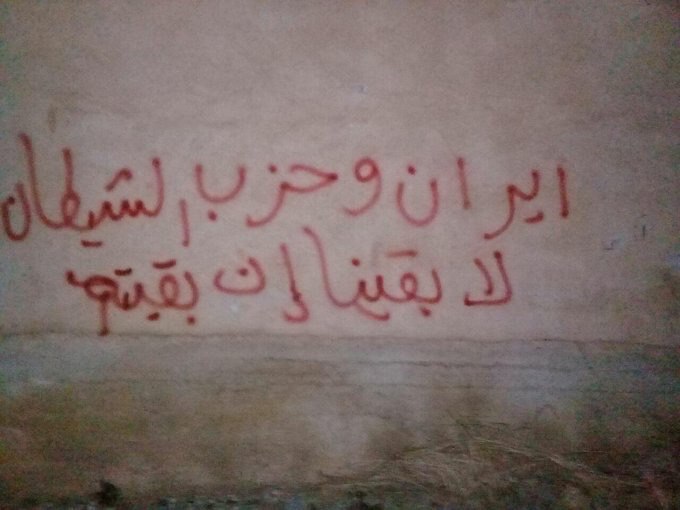 ايران و حزب الشيطان
لا بقينا إن بقيتم